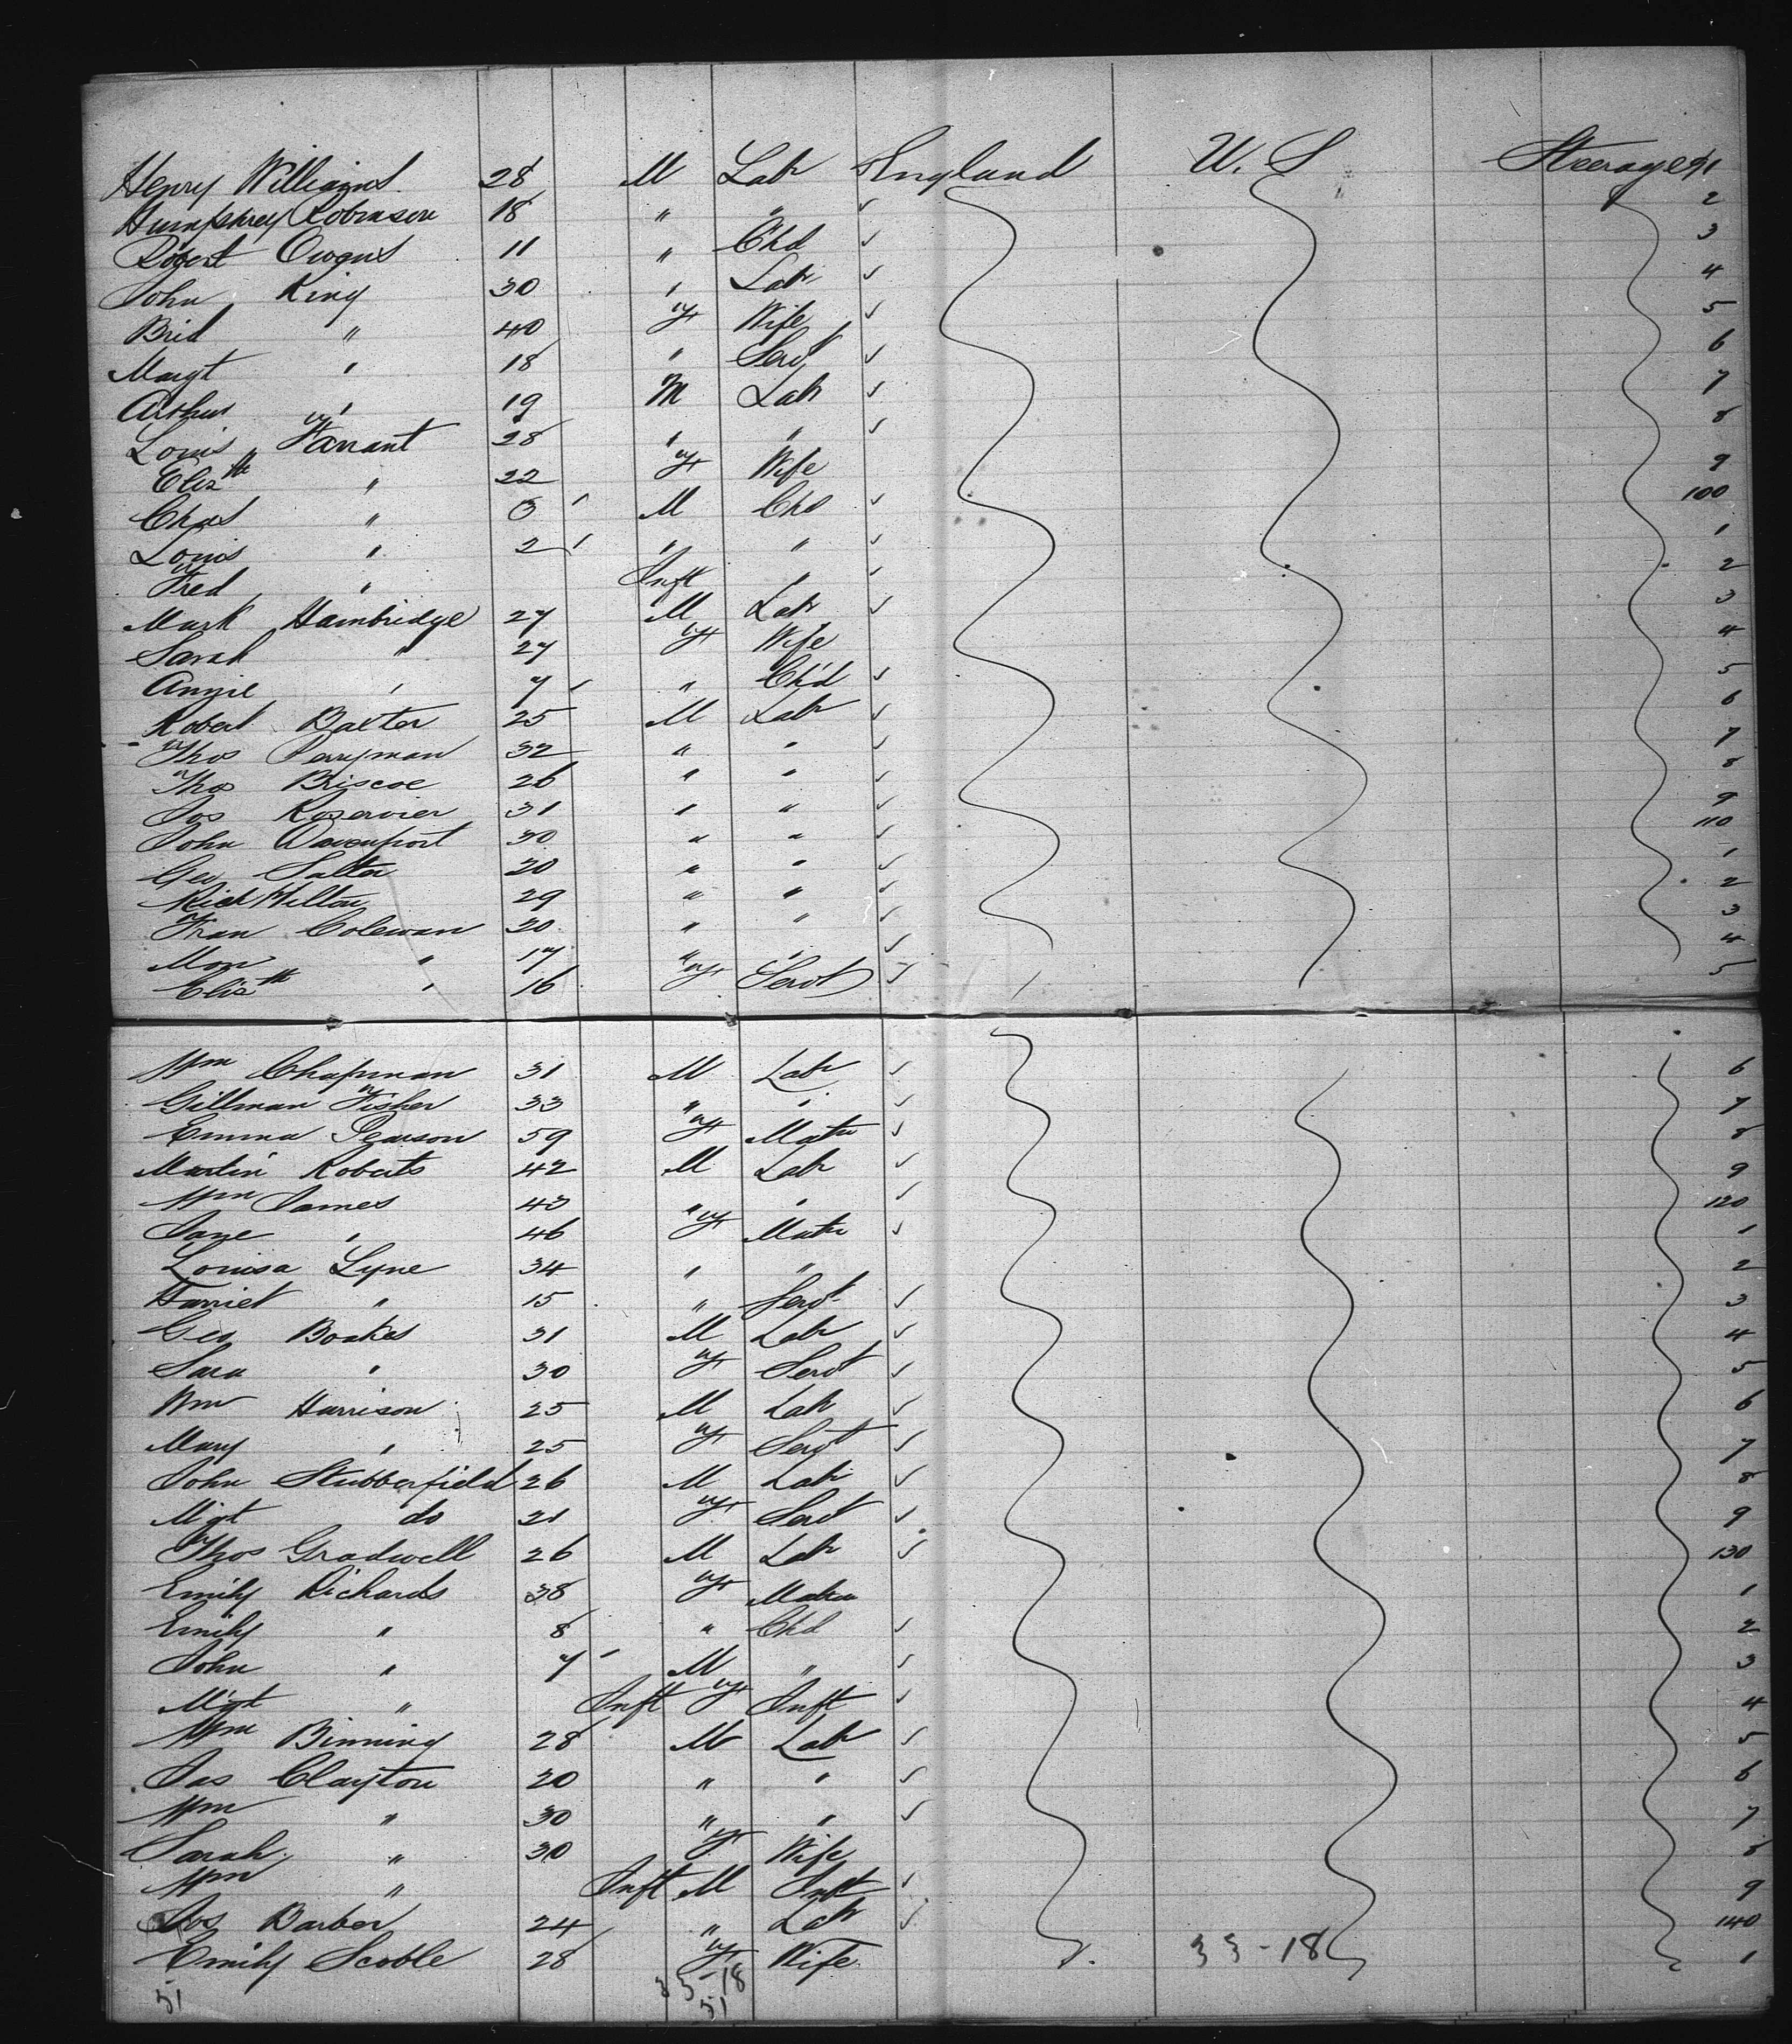 Henry Williams 28 M Lab England U.S Steerage 91
Humphrey Robinson 18 " " ✓ 2
Robert Owens 11 " Chd ✓ 3
John King 30 " Lab ✓ 4
Brid " 40 F Wife ✓ 5
Margt " 18 " Servt ✓ 6
Arthur " 19 M Lab ✓ 7
Louis Farrant 28 " " ✓ 8
Elizth " 22 F Wife 9
Chas " 3 M Chd ✓ 100
Louis " 2 " " ✓ 1
Fred " Inft " ✓ 2
Mark Hambridge 27 M Lab ✓ 3
Sarah " 27 F Wife 4
Annie " 7 " Chd ✓ 5
Robert Baxter 25 M Lab ✓ 6
Thos Perryman 32 " " ✓ 7
Thos Briscoe 26 " " ✓ 8
Jos 31 " " ✓ 9
John Davenport 30 " " ✓ 110
Geo Salter 20 " " ✓ 1
Rich Wilton 29 " " ✓ 2
Fran Coleman 20 " " ✓ 3
Mon " 17 " " ✓ 4
Elizth " 16 F Servt ✓ 5
Wm Chapman 31 M Lab ✓ 6
Gillman Fisher 33 " " ✓ 7
Emma Pearson 59 F Matrn ✓ 8
Martin Roberts 42 M Lab ✓ 9
Wm James 43 " " ✓ 120
Jane " 46 F Matrn ✓ 1
Louisa Lyne 34 " " 2
Harriet " 15 " Servt ✓ 3
Geo Boakes 31 M Lab ✓ 4
Sara " 30 F Servt ✓ 5
Wm Harrison 25 M Lab ✓ 6
Mary " 25 F Servt ✓ 7
John Stubberfield 26 M Lab ✓ 8
Mgt do 21 F Servt ✓ 9
Thos Gradwell 26 M Lab ✓ 130
Emily Richards 38 F Matrn 1
Emily " 8 " Chd ✓ 2
John " 7 M " ✓ 3
Mgt " Inft F Inft ✓ 4
Wm Binning 28 M Lab ✓ 5
Jas Clayton 20 " " ✓ 6
Wm " 30 " " ✓ 7
Sarah " 30 F Wife 8
Wm " Inft M Inft ✓ 9
Jos Barber 24 " Lab ✓ 140
Emily Scoble 28 F Wife 33-18 1
51 33-18
51